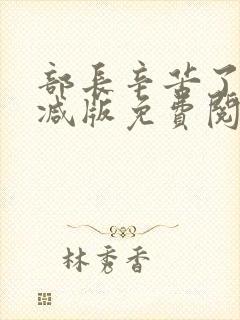 部長辛苦了
减版免費閱
林秀香